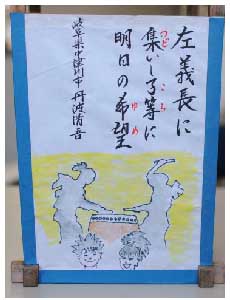 左義長に
集いし子等に
つど こら
明日の希望
ゆめ
岐阜県中津川市 丹波清吾